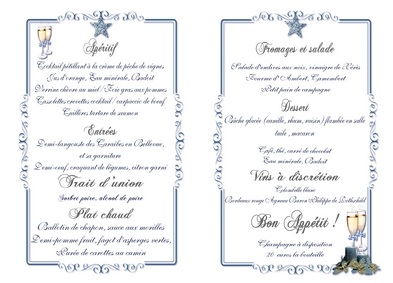 Apéritif
Cocktail pétillant à la crème de pêche de vignes
Jus d'orange, Eau minérale, Badoit
Verrine chèvre au miel / Foie gras aux pommes
Cassolettes crevettes cocktail / carpaccio de boeuf
Cuillers tartare de saumon
Entrées
Demi-langouste des Caraïbes en Bellevue,
et sa garniture
Demi-oeuf, croquant de légumes, citron garni
Trait d'union
Sorbet poire, alcool de poire
Plat chaud
Ballotin de chapon, sauce aux morilles
Demi-pomme fruit, fagot d'asperges vertes,
Purée de carottes au cumin
Fromages et salade
Salade d'endives aux noix, vinaigre de Xérès
Fourme d'Ambert, Camembert
Petit pain de campagne
Dessert
Bûche glacée (vanille, rhum, raisin) flambée en salle
tuile, macaron
Café, thé, carré de chocolat
Eau minérale, Badoit
Vins à discrétion
Colombelle blanc
Bordeaux rouge Agneau Baron Philippe de Rothschild
Bon Appétit !
Champagne à disposition
20 euros la bouteille